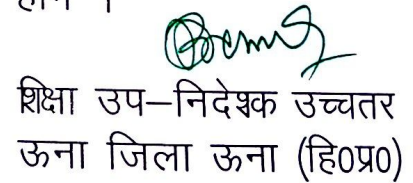 शिक्षा उप–निदेश्क उच्चतर
ऊना जिला ऊना (हि0प्र0)